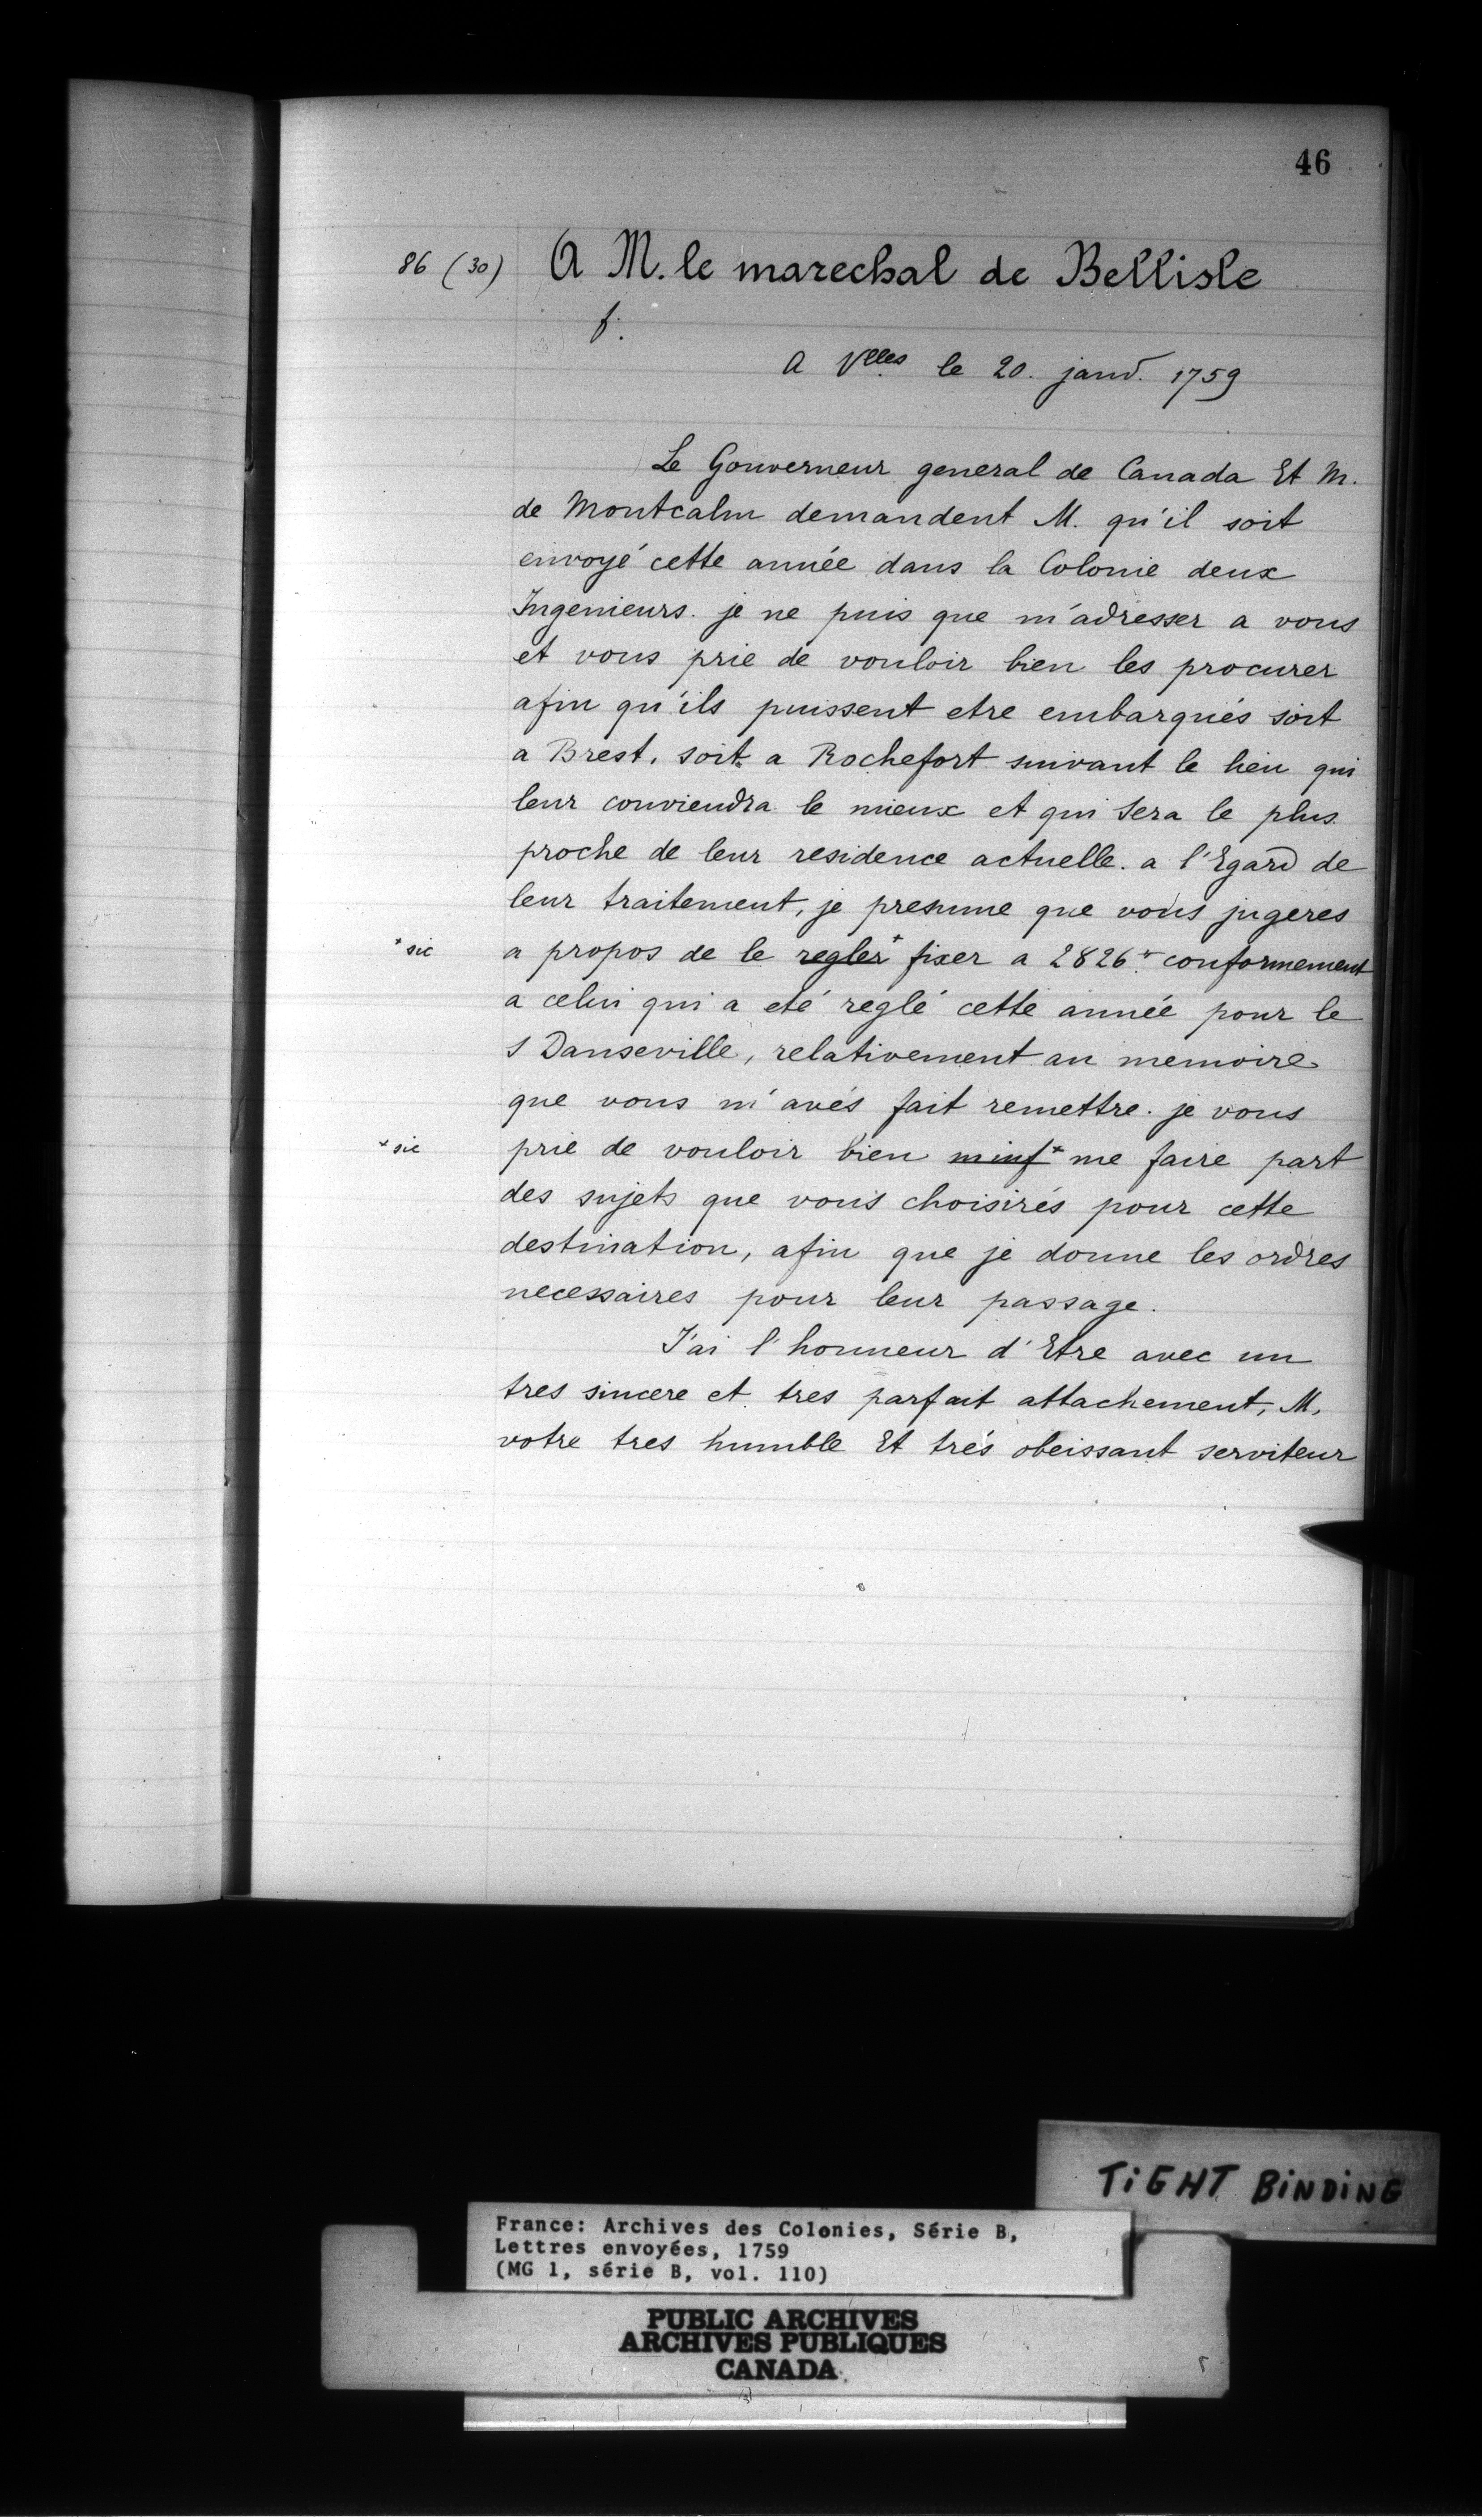 46
86 (30) A M. le marechal de Bellisle
f.
A Vlles le 20. janv. 1759
Le Gouverneur general de Canada Et M.
de Montcalm demandent M. qu'il soit
envoyé cette année dans la Colonie deux
Ingenieurs. je ne puis que m'adresser a vous
et vous prie de vouloir bien les procurer
afin qu'ils puissent etre embarqués soit
a Brest, soit a Rochefort suivant le lieu qui
leur conviendra le mieux et qui sera le plus
proche de leur residence actuelle. a l'Egard de
leur traitement, je presume que vous jugeres
* sic a propos de le regler* fixer a 2826 conformement
a celui qui a eté reglé cette année pour le
s Danseville, relativement au memoire
que vous m'avés fait remettre. je vous
* sic prie de vouloir bien minf* me faire part
des sujets que vous choisirés pour cette
destination, afin que je donne les ordres
necessaires pour leur passage.
J'ai l'honneur d'Etre avec un
tres sincere et tres parfait attachement, M,
votre tres humble Et trés obeissant serviteur
TiGHT BiNDiNG
France: Archives des Colonies, Série B,
Lettres envoyées, 1759
(MG 1, série B, vol. 110)
PUBLIC ARCHIVES
ARCHIVES PUBLIQUES
CANADA